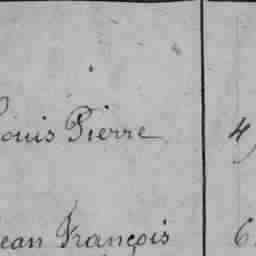 Louis Pierre 4
Jean François 6